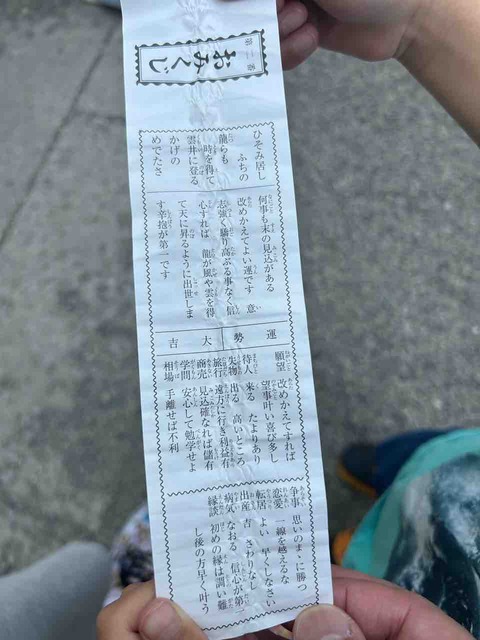 おみくじ
第一番
ひそみ居し
ふちの
龍らも
時を得て
雲井に登る
かげの
めでたさ
何事も末の見込がある
改めかえてよい運です 意
志強く驕り高ぶる事なく信
心すれば 龍が風や雲を得
て天に昇るように出世しま
す辛抱が第一です
運勢 大吉
願望 改めかえてすれば
望事叶い喜び多し
待人 来る たよりあり
失物 出る 高いところ
旅行 遠方に行き利益有
商売 見込確なれば儲有
学問 安心して勉学せよ
相場 手離せば不利
争事 思いのまゝに勝つ
恋愛 一線を越えるな
転居 よい 早くしなさい
出産 吉 さわりなし
病気 なおる 信心が第一
縁談 初めの縁は調い難
し後の方早く叶う